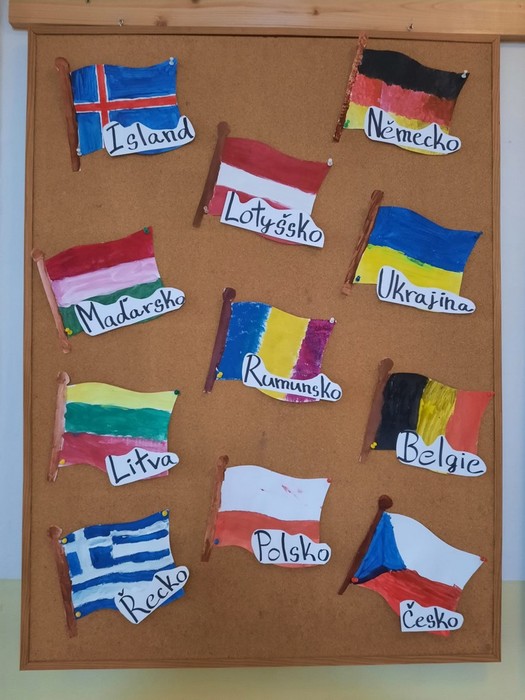 Island
Německo
Lotyšsko
Maďarsko
Ukrajina
Rumunsko
Litva
Belgie
Polsko
Řecko
Česko